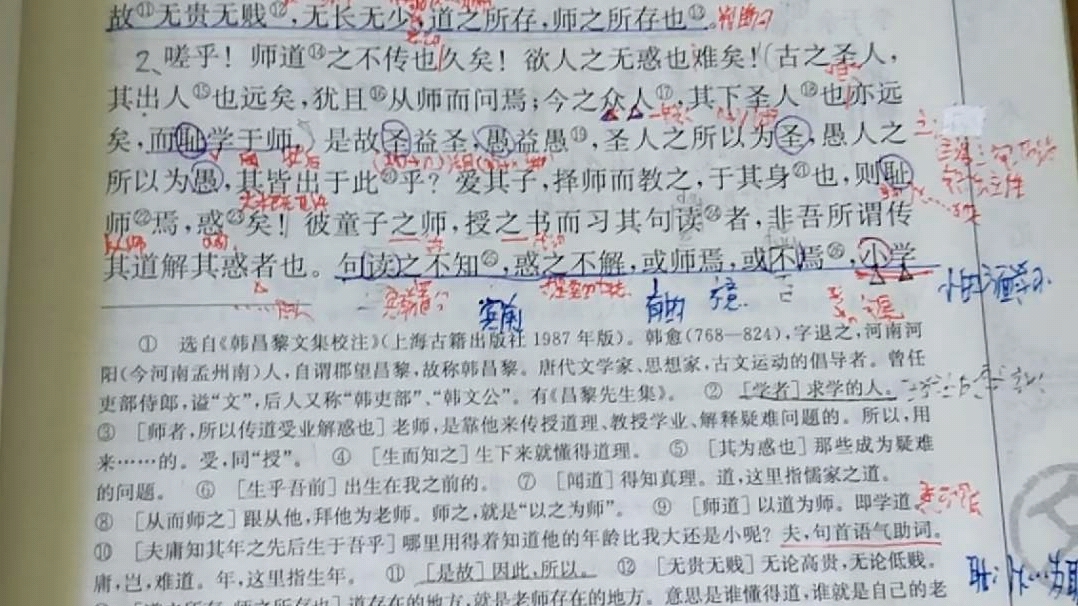 故⑪无贵无贱⑫，无长无少，道之所存，师之所存也⑬。
2、嗟乎！师道⑭之不传也久矣！欲人之无惑也难矣！古之圣人，
其出人⑮也远矣，犹且⑯从师而问焉；今之众人⑰，其下圣人⑱也亦远
矣，而耻学于师。是故圣益圣，愚益愚⑲，圣人之所以为圣，愚人之
所以为愚，其皆出于此⑳乎？爱其子，择师而教之，于其身㉑也，则耻
师㉒焉，惑㉓矣！彼童子之师，授之书而习其句读㉔者，非吾所谓传
其道解其惑者也。句读之不知㉕，惑之不解，或师焉，或不焉㉖，小学
实前
有的
① 选自《韩昌黎文集校注》（上海古籍出版社1987年版）。韩愈（768—824），字退之，河南河
阳（今河南孟州南）人，自谓郡望昌黎，故称韩昌黎。唐代文学家、思想家，古文运动的倡导者。曾任
吏部侍郎，谥“文”，后人又称“韩吏部”、“韩文公”。有《昌黎先生集》。 ② ［学者］求学的人。
③ ［师者，所以传道受业解惑也］老师，是靠他来传授道理、教授学业、解释疑难问题的。所以，用
来……的。受，同“授”。 ④ ［生而知之］生下来就懂得道理。 ⑤ ［其为惑也］那些成为疑难
的问题。 ⑥ ［生乎吾前］出生在我之前的。 ⑦ ［闻道］得知真理。道，这里指儒家之道。
⑧ ［从而师之］跟从他，拜他为老师。师之，就是“以之为师”。 ⑨ ［师道］以道为师。即学道。
⑩ ［夫庸知其年之先后生于吾乎］哪里用得着知道他的年龄比我大还是小呢？夫，句首语气助词。
庸，岂，难道。年，这里指生年。 ⑪ ［是故］因此，所以。 ⑫ ［无贵无贱］无论高贵，无论低贱。
［道之所存，师之所存也］道存在的地方，就是老师存在的地方。意思是谁懂得道，谁就是自己的老